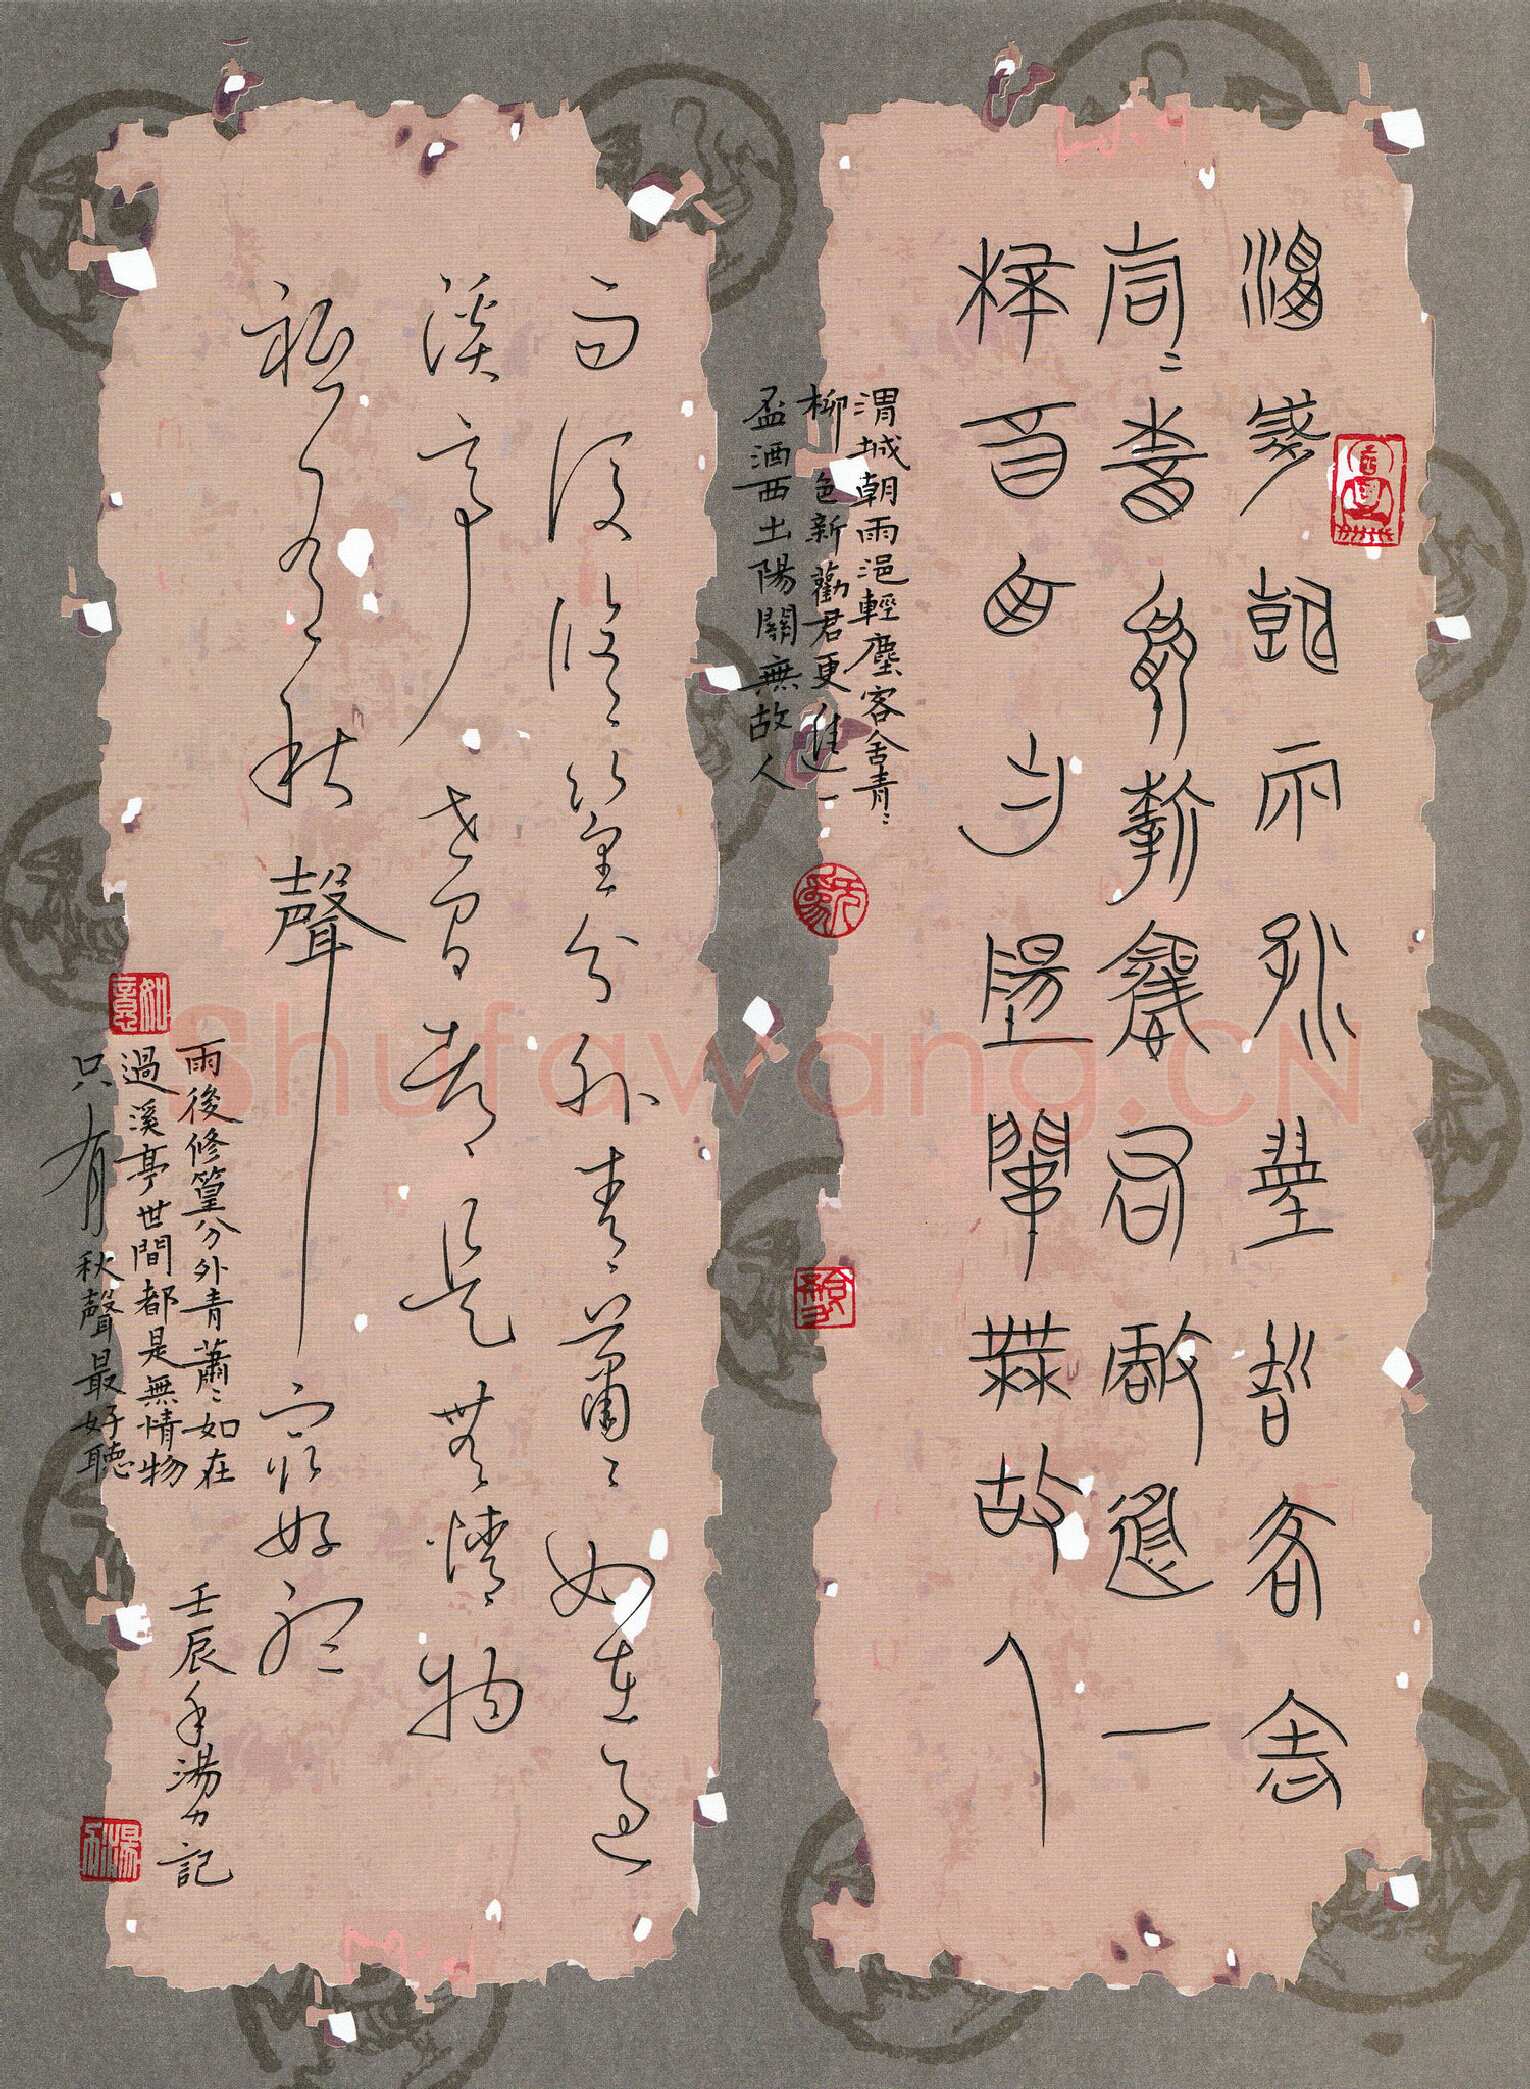 渭城朝雨浥輕塵客舍
青〻柳色新勸君更進一
杯酒西出陽關無故人
渭城朝雨浥輕塵客舍青〻
柳色新勸君更進一
盃酒西出陽關無故人
雨後修篁分外青蕭〻如在過
溪亭世間都是無情物
秪有秋聲最好聽
雨後修篁分外青蕭〻如在
過溪亭世間都是無情物
只有秋聲最好聽
壬辰年湯力記
如意
Shufawang.CN